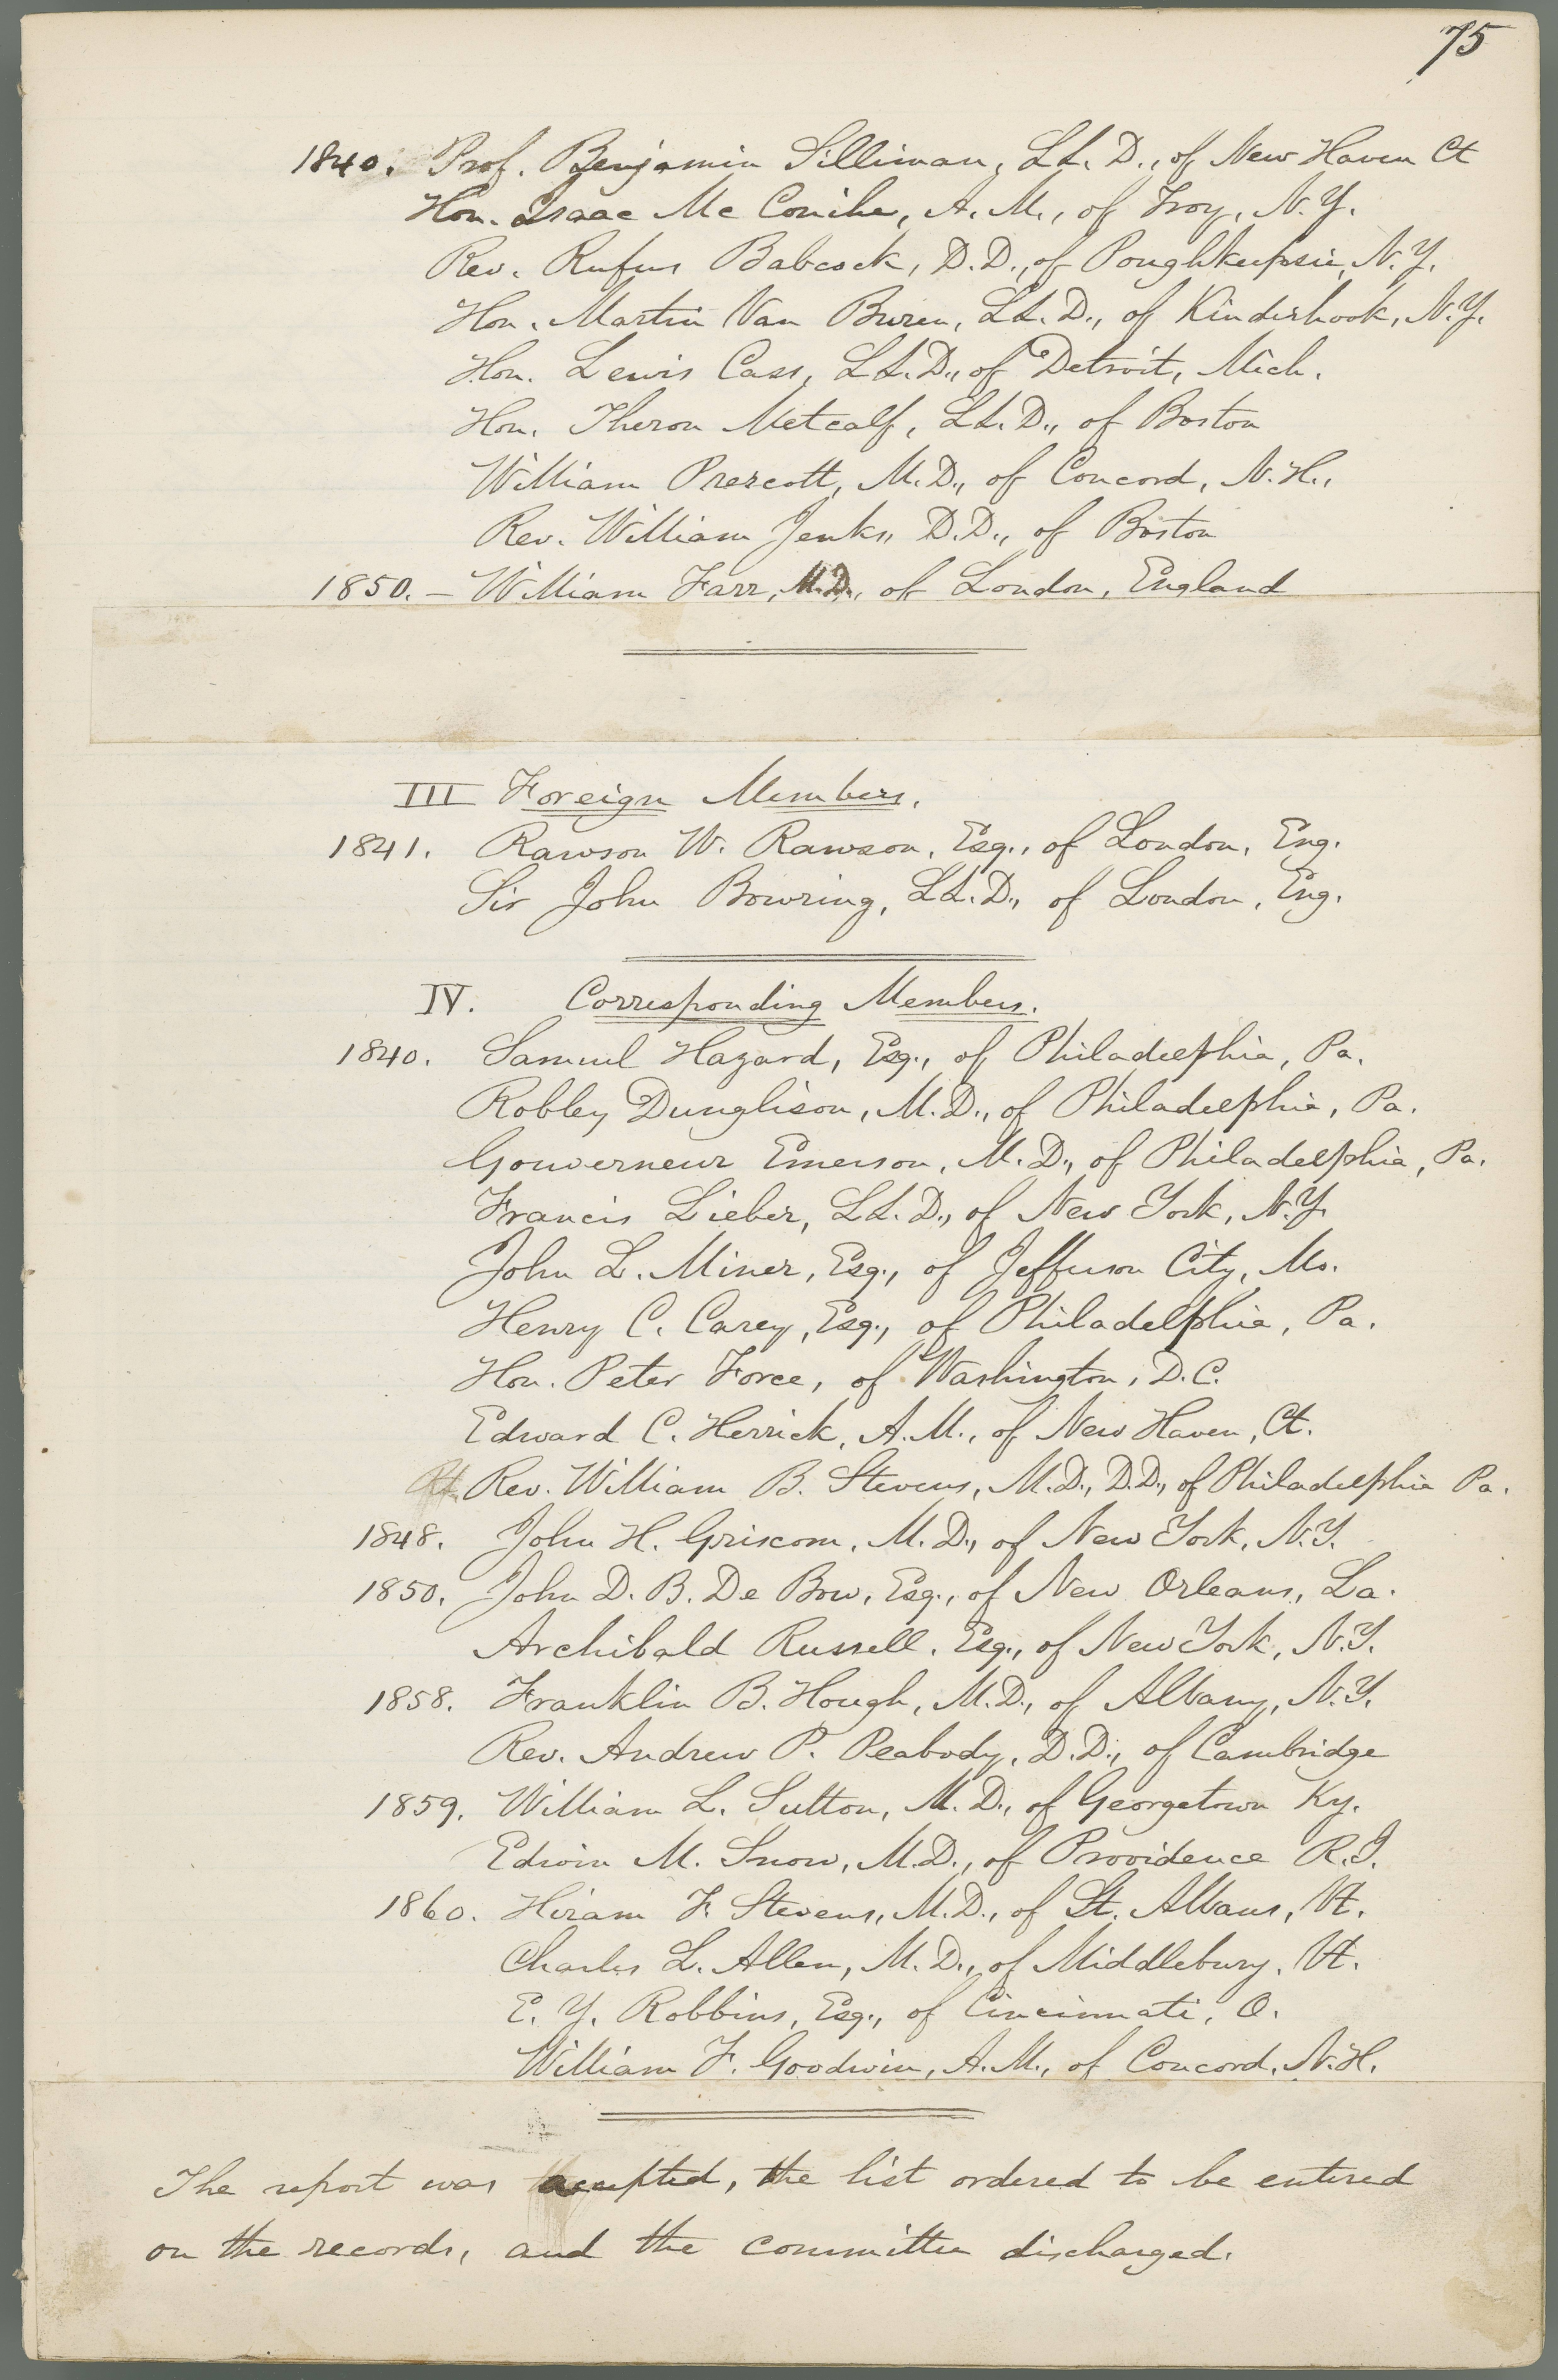 75
1840. Prof. Benjamin Silliman, LL. D., of New Haven Ct
Hon. Isaac Mc Conihe, A. M., of Troy, N. Y.
Rev. Rufus Babcock, D. D., of Poughkeepsie, N. Y.
Hon. Martin Van Buren, LL. D., of Kinderhook, N. Y.
Hon. Lewis Cass, LL. D., of Detroit, Mich.
Hon. Theron Metcalf, LL. D., of Boston
William Prescott, M. D., of Concord, N. H.,
Rev. William Jenks, D. D., of Boston
1850. – William Farr, M. D., of London, England
III Foreign Members.
1841. Rawson W. Rawson, Esq., of London, Eng.
Sir John Bowring, LL. D., of London, Eng.
IV. Corresponding Members.
1840. Samuel Hazard, Esq., of Philadelphia, Pa.
Robley Dunglison, M. D., of Philadelphia, Pa.
Gouverneur Emerson, M. D., of Philadelphia, Pa.
Francis Lieber, LL. D., of New York, N. Y.
John L. Miner, Esq., of Jefferson City, Mo.
Henry C. Carey, Esq., of Philadelphia, Pa.
Hon. Peter Force, of Washington, D. C.
Edward C. Herrick, A. M., of New Haven, Ct.
Rt. Rev. William B. Stevens, M. D., D. D., of Philadelphia Pa.
1848. John H. Griscom, M. D., of New York, N. Y.
1850. John D. B. De Bow, Esq., of New Orleans, La.
Archibald Russell, Esq., of New York, N. Y.
1858. Franklin B. Hough, M. D., of Albany, N. Y.
Rev. Andrew P. Peabody, D. D., of Cambridge
1859. William L. Sutton, M. D., of Georgetown Ky.
Edwin M. Snow, M. D., of Providence R. I.
1860. Hiram F. Stevens, M. D., of St. Albans, Vt.
Charles L. Allen, M. D., of Middlebury, Vt.
E. Y. Robbins, Esq., of Cincinnati, O.
William F. Goodwin, A. M., of Concord, N. H.
The report was accepted, the list ordered to be entered
on the records, and the committee discharged.